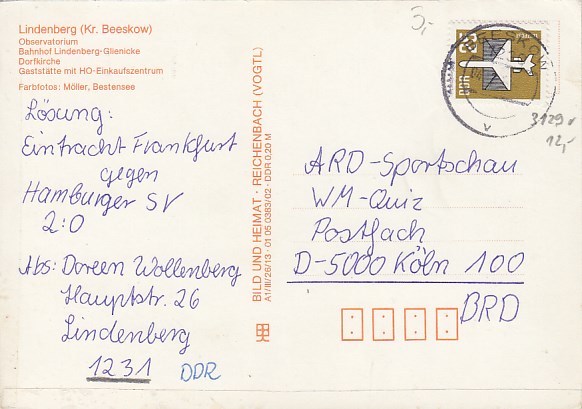 Lindenberg (Kr. Beeskow)
Observatorium
Bahnhof Lindenberg-Glienicke
Dorfkirche
Gaststätte mit HO-Einkaufszentrum
Farbfotos: Möller, Bestensee
Lösung:
Eintracht Frankfurt
gegen
Hamburger SV
2:0
Abs: Doreen Wollenberg
Hauptstr. 26
Lindenberg
1231
DDR
BILD UND HEIMAT · REICHENBACH (VOGTL)
A1/III/26/13 · 01 05 0383/02 · DDR 0,20 M
5,-
25
DDR
BEESKOW
v
3129 v
12,-
ARD-Sportschau
WM-Quiz
Postfach
D-5000 Köln 100
BRD